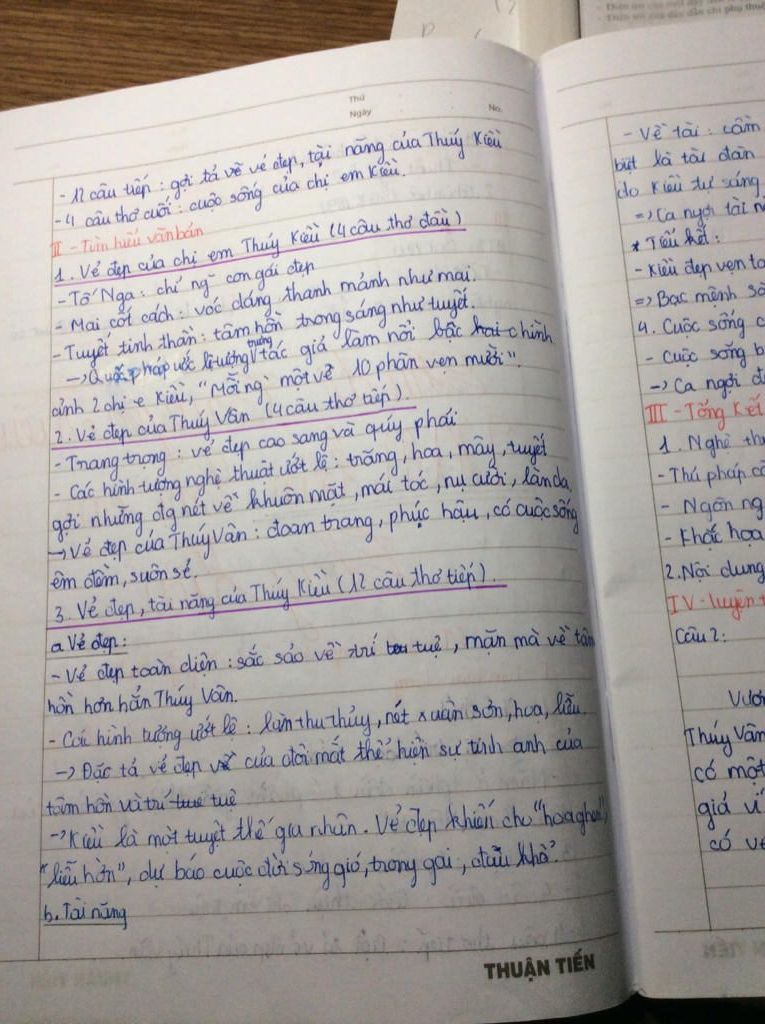 Thứ
Ngày
No.
- 12 câu tiếp : gợi tả về vẻ đẹp, tài năng của Thúy Kiều
- 4 câu thơ cuối : cuộc sống của chị em Kiều.
II - Tìm hiểu văn bản
1. Vẻ đẹp của chị em Thúy Kiều (4 câu thơ đầu)
- Tố Nga : chỉ ng` con gái đẹp
- Mai cốt cách : vóc dáng thanh mảnh như mai.
- Tuyết tinh thần : tâm hồn trong sáng như tuyết.
→ pháp ước lệ tượng trưng tác giả làm nổi bậc hai chỉnh
ảnh 2 chị e Kiều, "Mỗi ng` một vẻ 10 phân vẹn mười".
2. Vẻ đẹp của Thúy Vân (4 câu thơ tiếp).
- Trang trọng : vẻ đẹp cao sang và quý phái
- Các hình tượng nghệ thuật ướt lệ : trăng, hoa, mây, tuyết
gợi những đg nét về khuôn mặt, mái tóc, nụ cười, làn da.
→ Vẻ đẹp của Thúy Vân : đoan trang, phúc hậu, có cuộc sống
êm đềm, suôn sẻ.
3. Vẻ đẹp, tài năng của Thúy Kiều (12 câu thơ tiếp).
a. Vẻ đẹp :
- Vẻ đẹp toàn diện : sắc sảo về trí tuệ, mặn mà về tâm
hồn hơn hẳn Thúy Vân.
- Các hình tượng ướt lệ : làn thu thủy, nét xuân sơn, hoa, liễu.
→ Đặc tả vẻ đẹp của đôi mắt thể hiện sự tinh anh của
tâm hồn và trí tuệ
→ Kiều là một tuyệt thế gia nhân. Vẻ đẹp khiến cho "hoa ghen",
"liễu hờn", dự báo cuộc đời sóng gió, trong gai, đau khổ.
b. Tài năng
THUẬN TIẾN
- Về tài : cầm
bút là tài đàn
do Kiều tự sáng
=> Ca ngợi tài n
* Tiểu kết :
- Kiều đẹp vẹn to
=> Bạc mệnh số
4. Cuộc sống c
- Cuộc sống b
→ Ca ngợi đ
III - Tổng Kết
1. Nghệ th
- Thủ pháp cô
- Ngôn ng
- Khắc họa
2. Nội dung
IV - luyện t
Câu 2 :
Vươn
Thúy Vân
có một
giá v
có vẻ